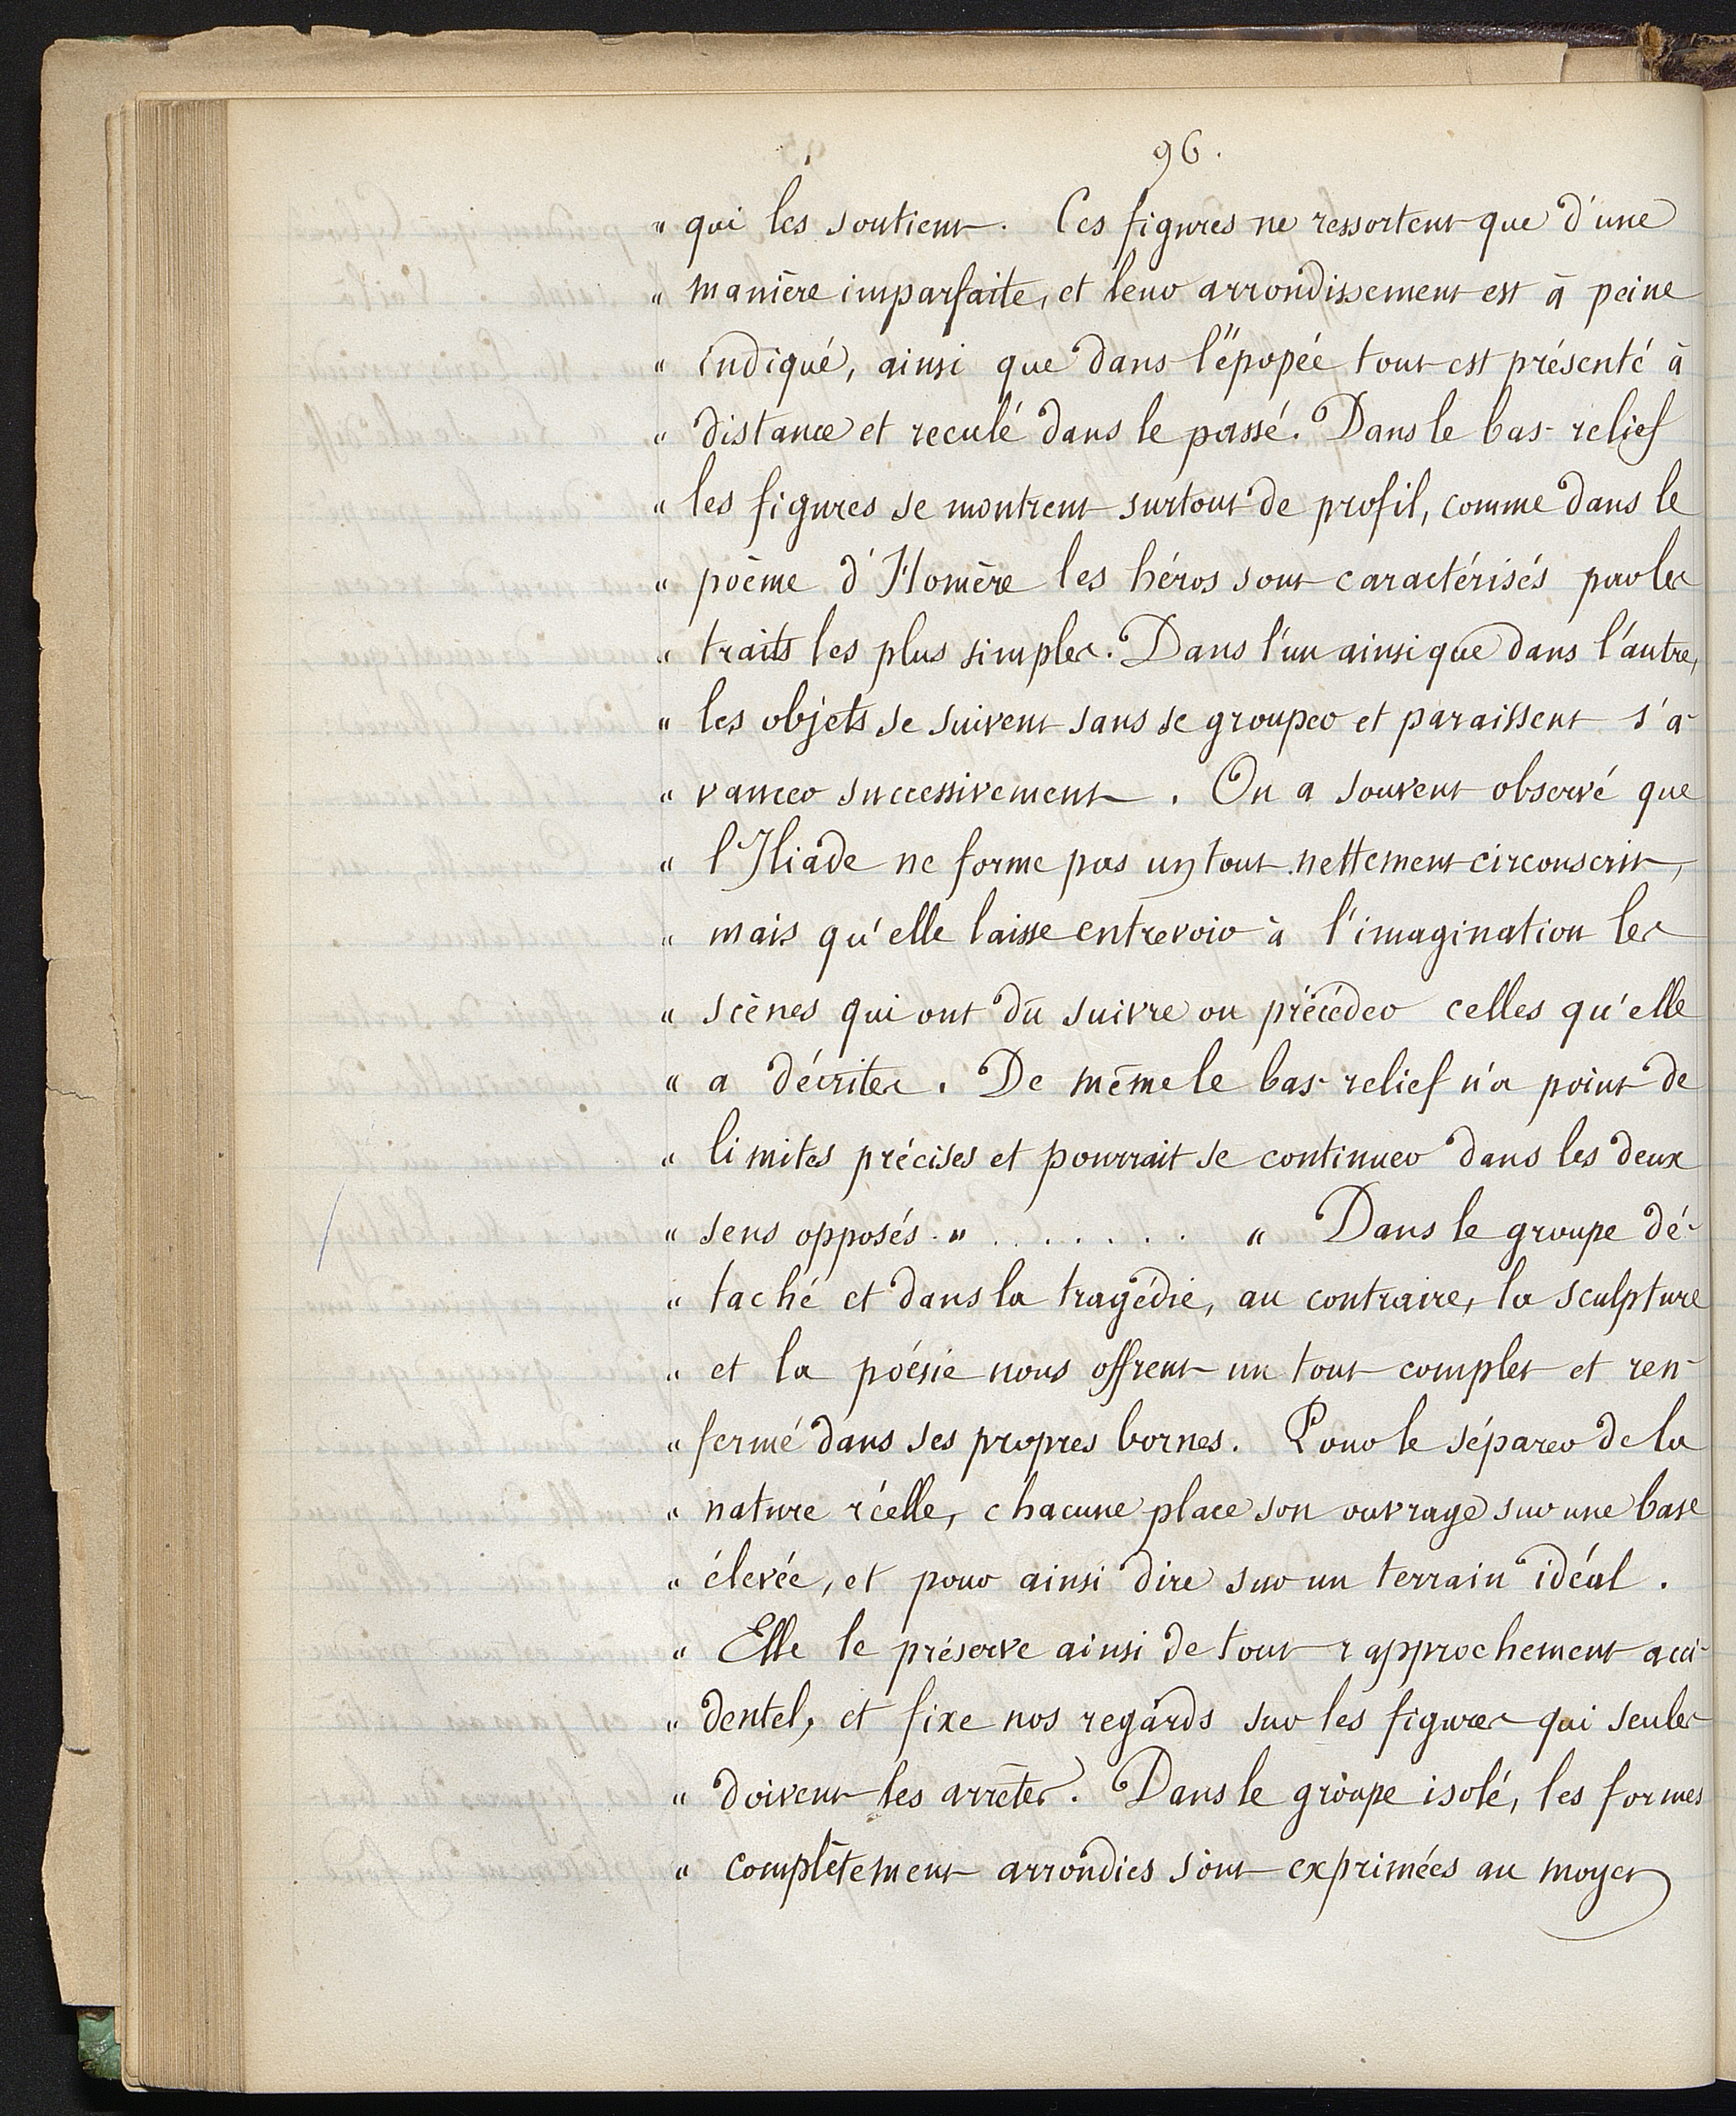 96.
" qui les soutient. Ces figures ne ressortent que d'une
" manière imparfaite, et leur arrondissement est à peine
" indiqué, ainsi que dans l'épopée tout est présenté à
" distance et reculé dans le passé. Dans le bas-relief
" les figures se montrent surtout de profil, comme dans le
" poème d'Homère les héros sont caractérisés par les
" traits les plus simples. Dans l'un ainsi que dans l'autre,
" les objets se suivent sans se grouper et paraissent s'a-
" vancer successivement. On a souvent observé que
" l'Iliade ne forme pas un tout nettement circonscrit,
" mais qu'elle laisse entrevoir à l'imagination les
" scènes qui ont dû suivre ou précéder celles qu'elle
" a décrites. De même le bas-relief n'a point de
" limites précises et pourrait se continuer dans les deux
" sens opposés." . . . . . . . " Dans le groupe dé-
" taché et dans la tragédie, au contraire, la sculpture
" et la poésie nous offrent un tout complet et ren-
" fermé dans ses propres bornes. Pour le séparer de la
" nature réelle, chacune place son ouvrage sur une base
" élevée, et pour ainsi dire sur un terrain idéal.
" Elle le préserve ainsi de tout rapprochement acci-
" dentel, et fixe nos regards sur les figures qui seules
" doivent les arrêter. Dans le groupe isolé, les formes
" complètement arrondies sont exprimées au moyen